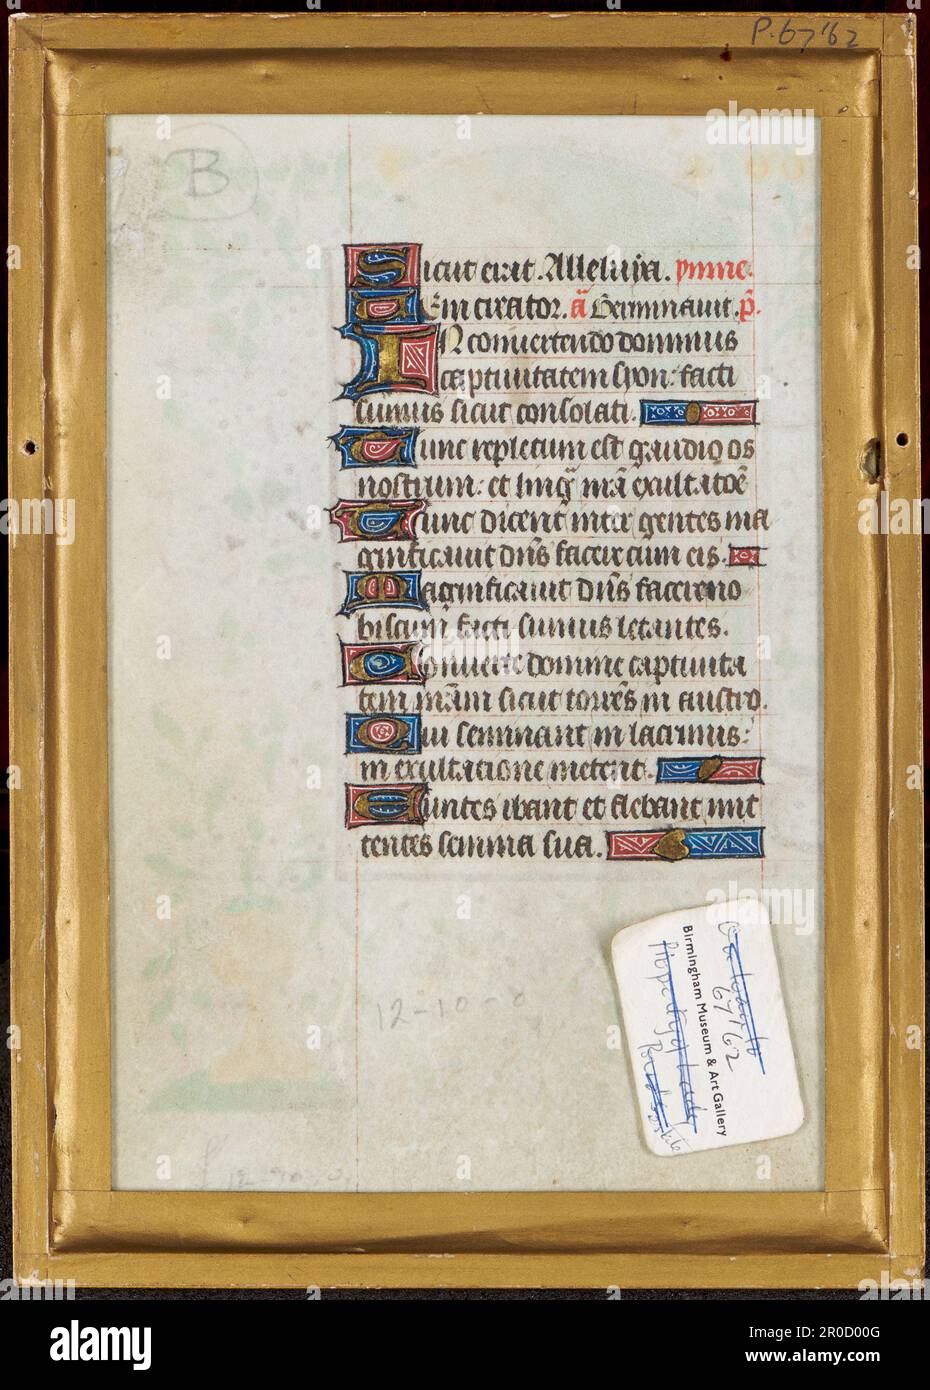 P.67'62
B
Sicut erit. Alleluja. ymne.
Em creator. ā Germinavit. p̄.
IN convertendo dominus
captivitatem syon: facti
sumus sicut consolati.
Tunc repletum est gaudio os
nostrum: et ling mā exultatōe
Tunc dicent inter gentes ma
gnificavit dn̄s facere cum eis.
Magnificavit dn̄s facere no
biscum facti sumus letantes.
Converte domine captivita
tem nrām sicut torrēs in austro.
Qui seminant in lacrimis:
in exultatione metent.
Euntes ibant et flebant mit
tentes semina sua.
12-10-0
67'62
Birmingham Museum & Art Gallery
Property of Lady
12-10-0
alamy
Image ID: 2R0D00G
www.alamy.com